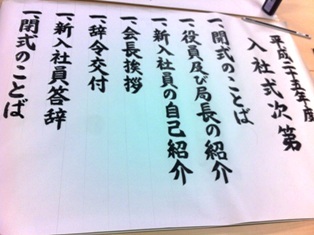 平成二十五年度
入社式次第
一、開式のことば
一、役員及び局長の紹介
一、新入社員の自己紹介
一、会長挨拶
一、辞令交付
一、新入社員答辞
一、閉式のことば